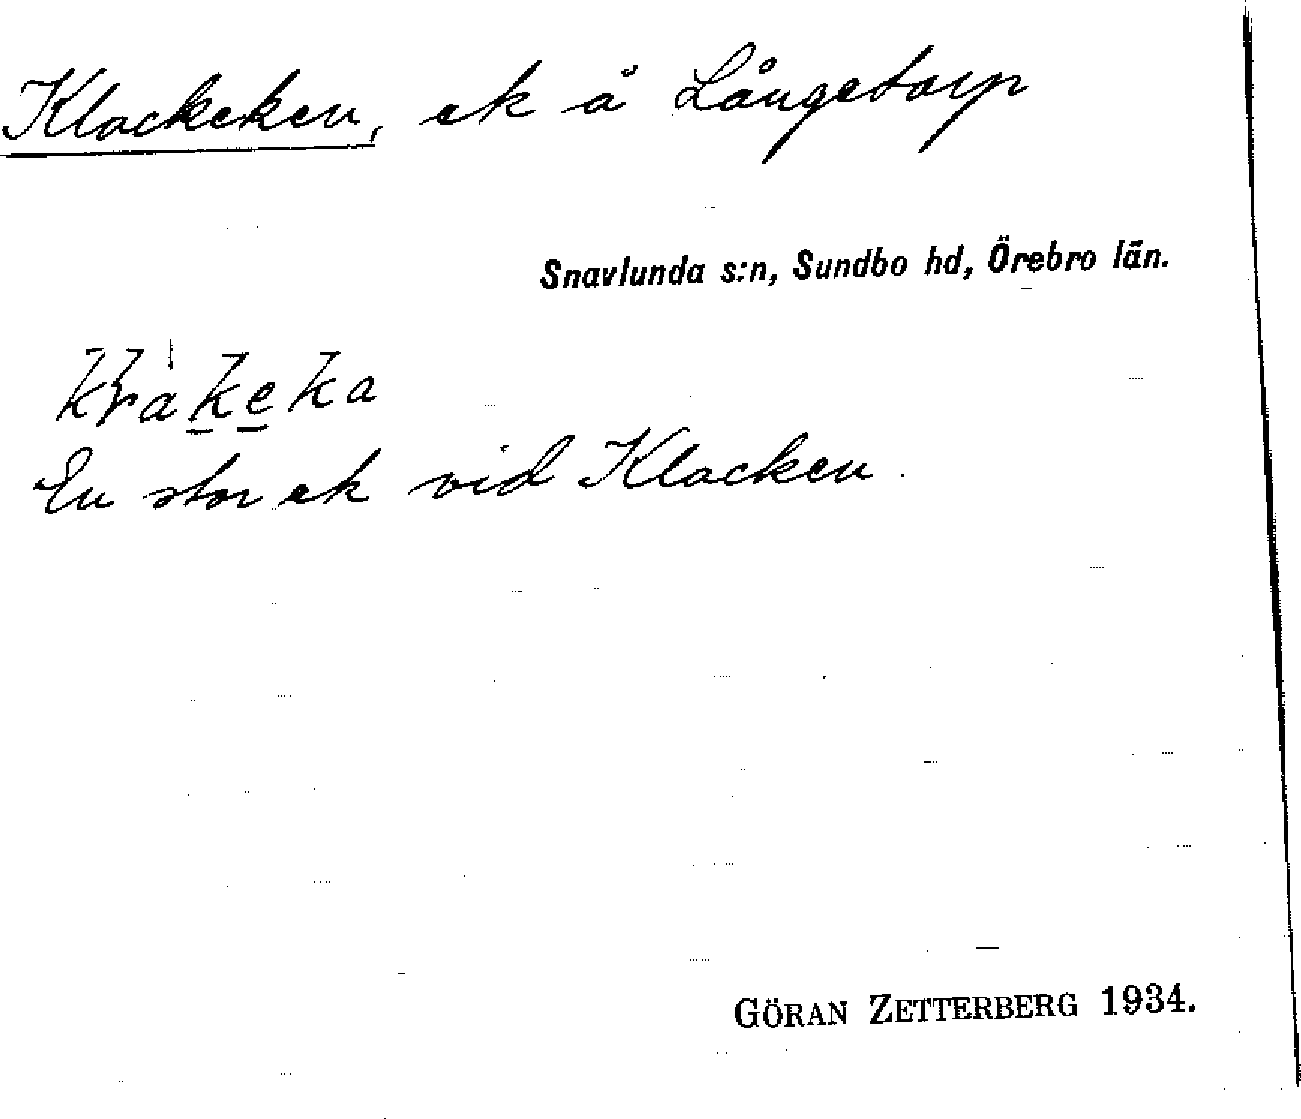 Klackeken, ek å Långetorp
Snavlunda s:n, Sundbo hd, Örebro län.
En stor ek vid Klacken.
GÖRAN ZETTERBERG 1934.